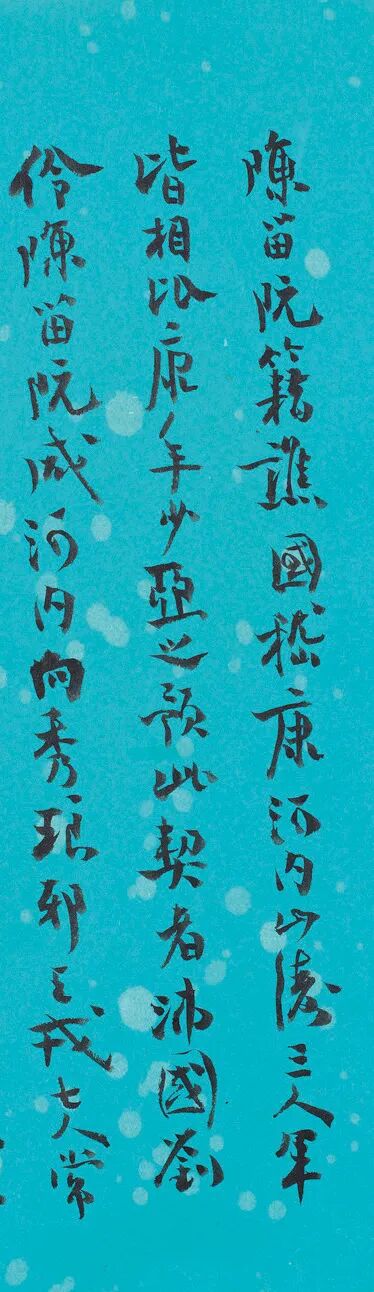 陳留阮籍譙國嵇康河内山濤三人年
皆相比康年少亞之預此契者沛國劉
伶陳留阮咸河内向秀琅邪王戎七人常